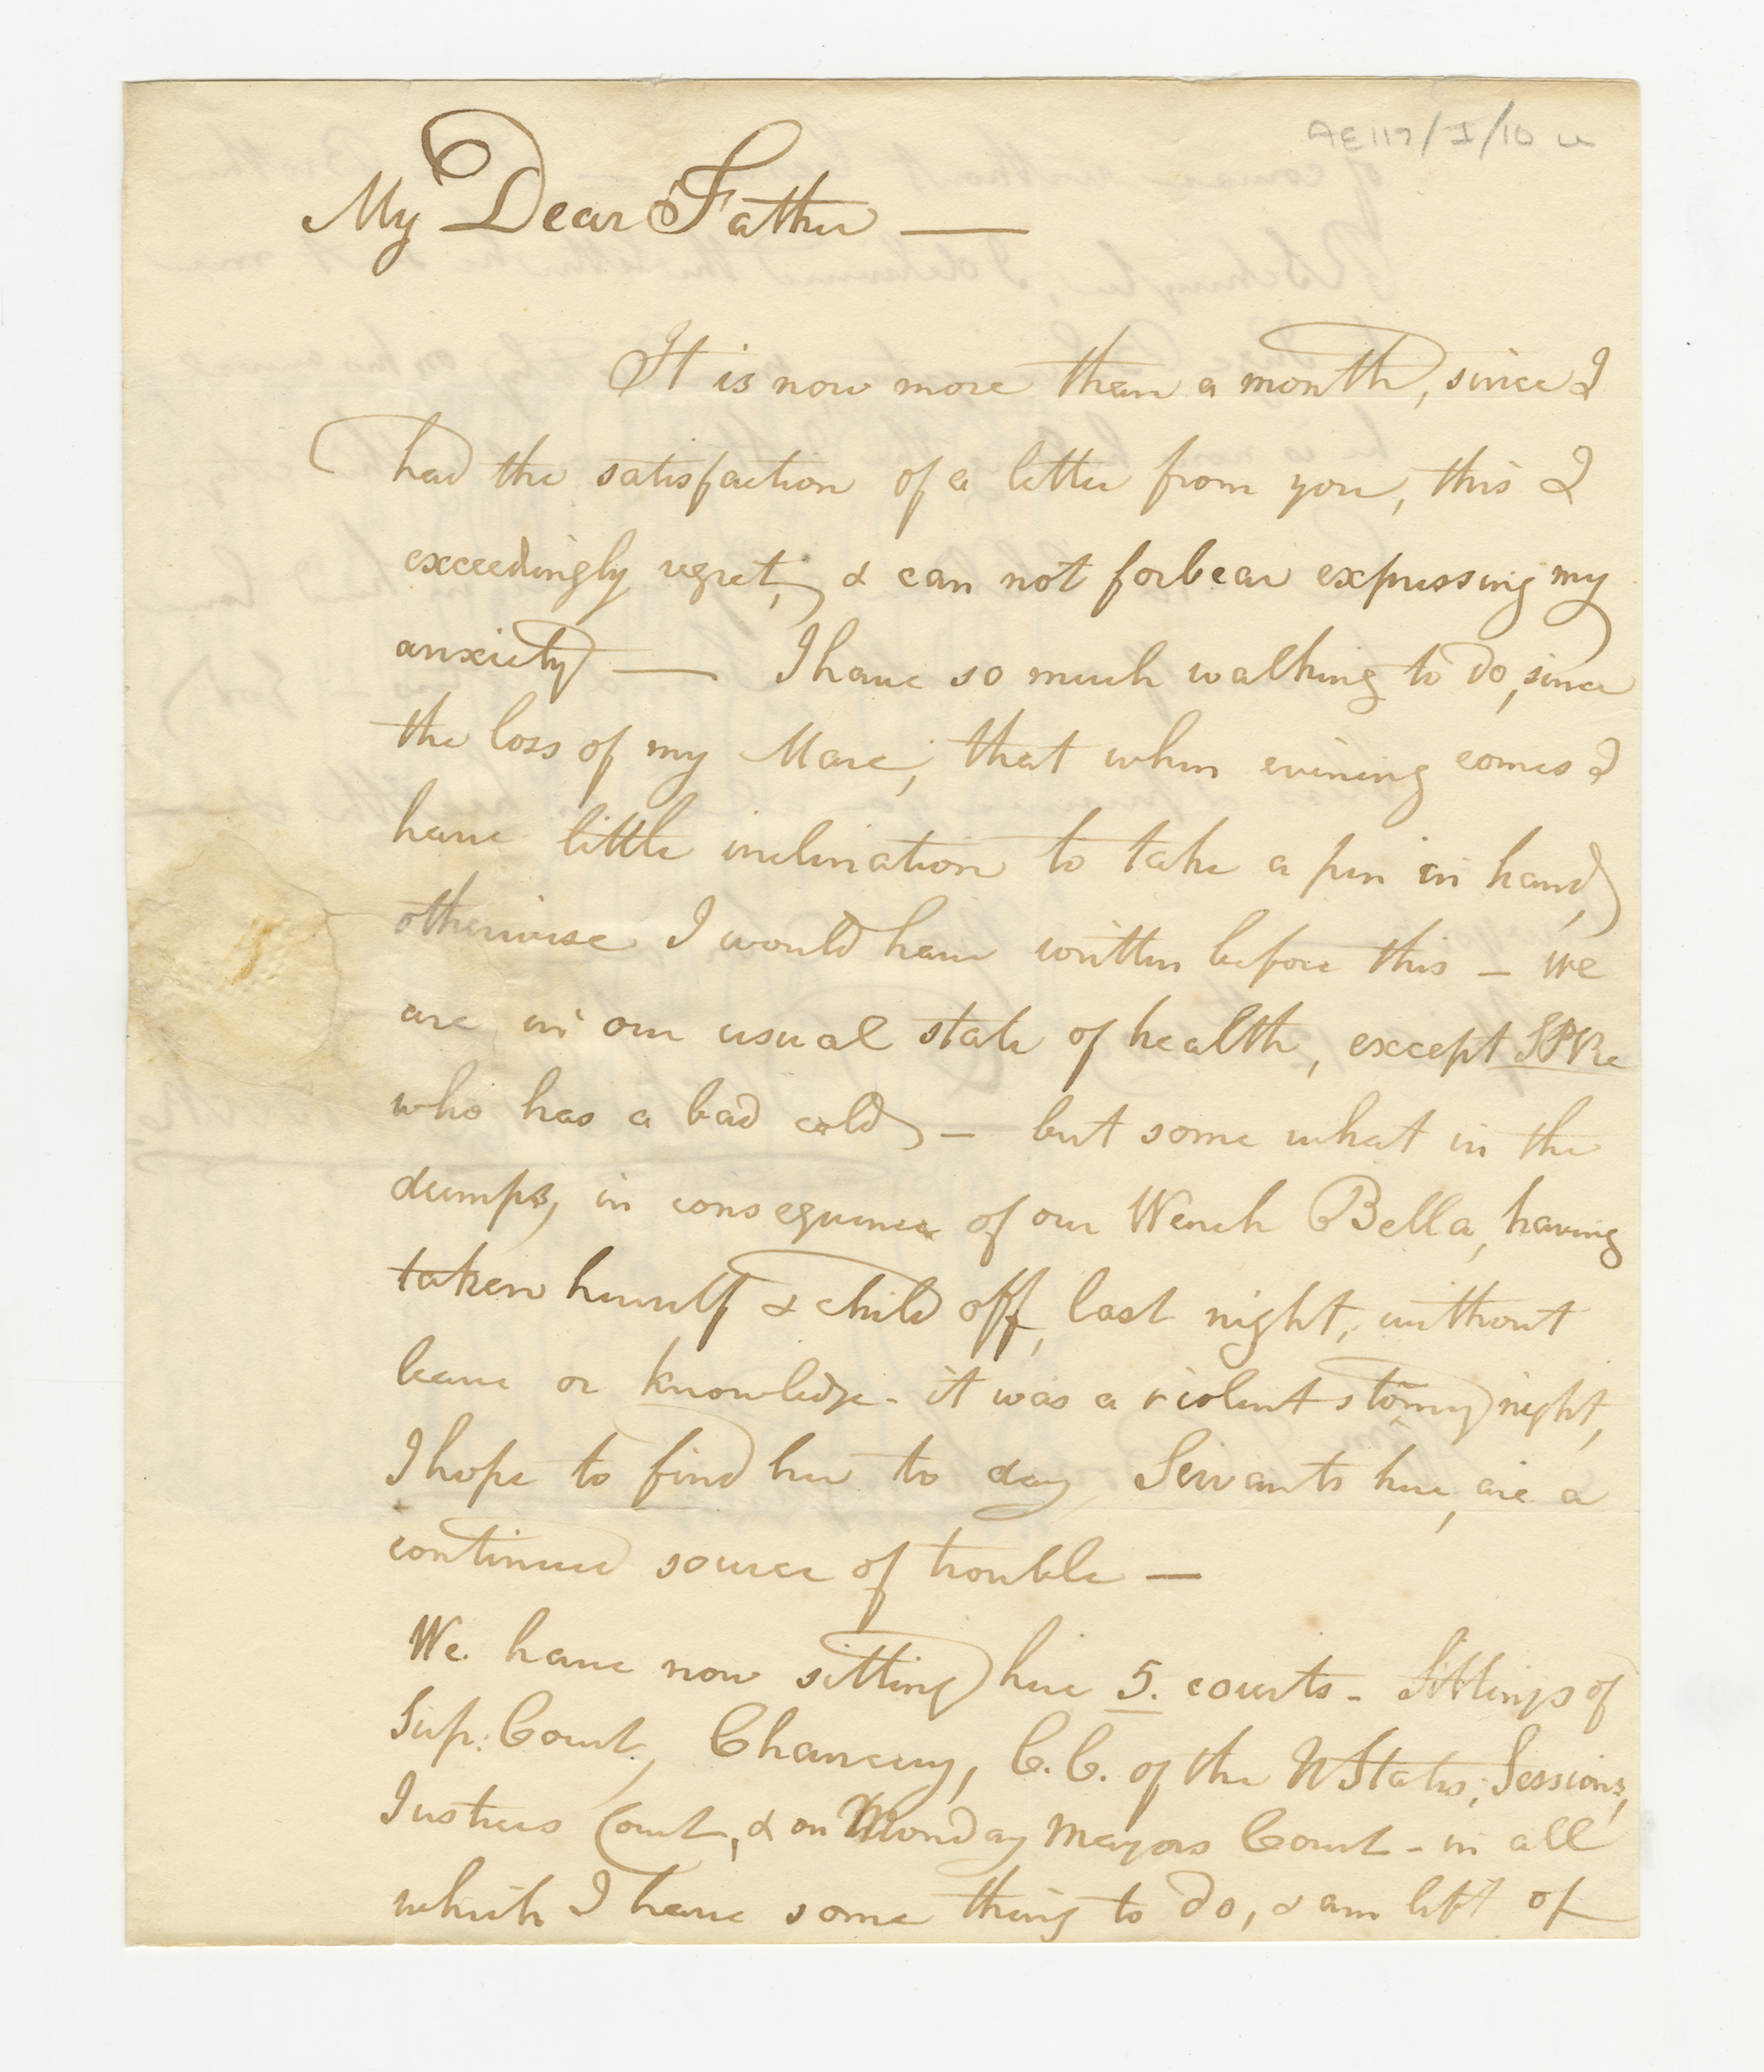 AE117/I/10 u
My Dear Father —
It is now more than a month, since I
had the satisfaction of a letter from you, this I
exceedingly regret, & can not forbear expressing my
anxiety — I have so much walking to do, since
the loss of my Mare, that when evening comes I
have little inclination to take a pen in hand,
otherwise I would have written before this – we
are in our usual state of health, except
who has a bad cold – but some what in the
dumps, in consequence of our Wench Bella, having
taken herself & child off, last night, without
leave or knowledge - it was a violent stormy night,
I hope to find her to day Servants here, are a
continued source of trouble —
We have now sitting here 5. courts - Sittings of
Sup: Court, Chancery, C.C. of the UStates; Sessions,
Justices Court, & on Monday Mayors Court - in all
which I have some thing to do, & am left of